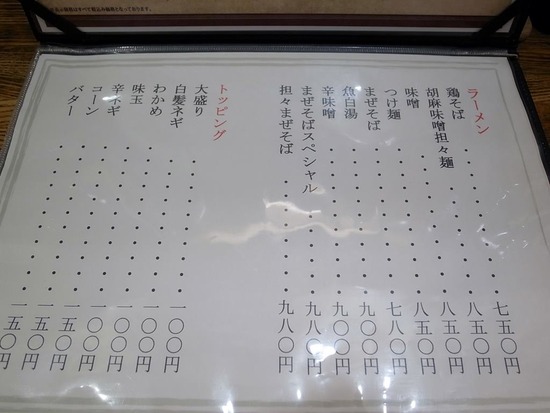 ラーメン
鶏そば・・・・・・・・・・七五〇円
胡麻味噌担々麺・・・・・・・・八五〇円
味噌・・・・・・・・・・・八五〇円
つけ麺・・・・・・・・・・八五〇円
まぜそば・・・・・・・・・・七八〇円
魚白湯・・・・・・・・・・九〇〇円
辛味噌・・・・・・・・・・九〇〇円
まぜそばスペシャル・・・・・・九八〇円
担々まぜそば・・・・・・・・九八〇円
トッピング
大盛り・・・・・・・・・・一〇〇円
白髪ネギ・・・・・・・・・・一〇〇円
わかめ・・・・・・・・・・一〇〇円
味玉・・・・・・・・・・・一〇〇円
辛ネギ・・・・・・・・・・一五〇円
コーン・・・・・・・・・・一五〇円
バター・・・・・・・・・・一五〇円